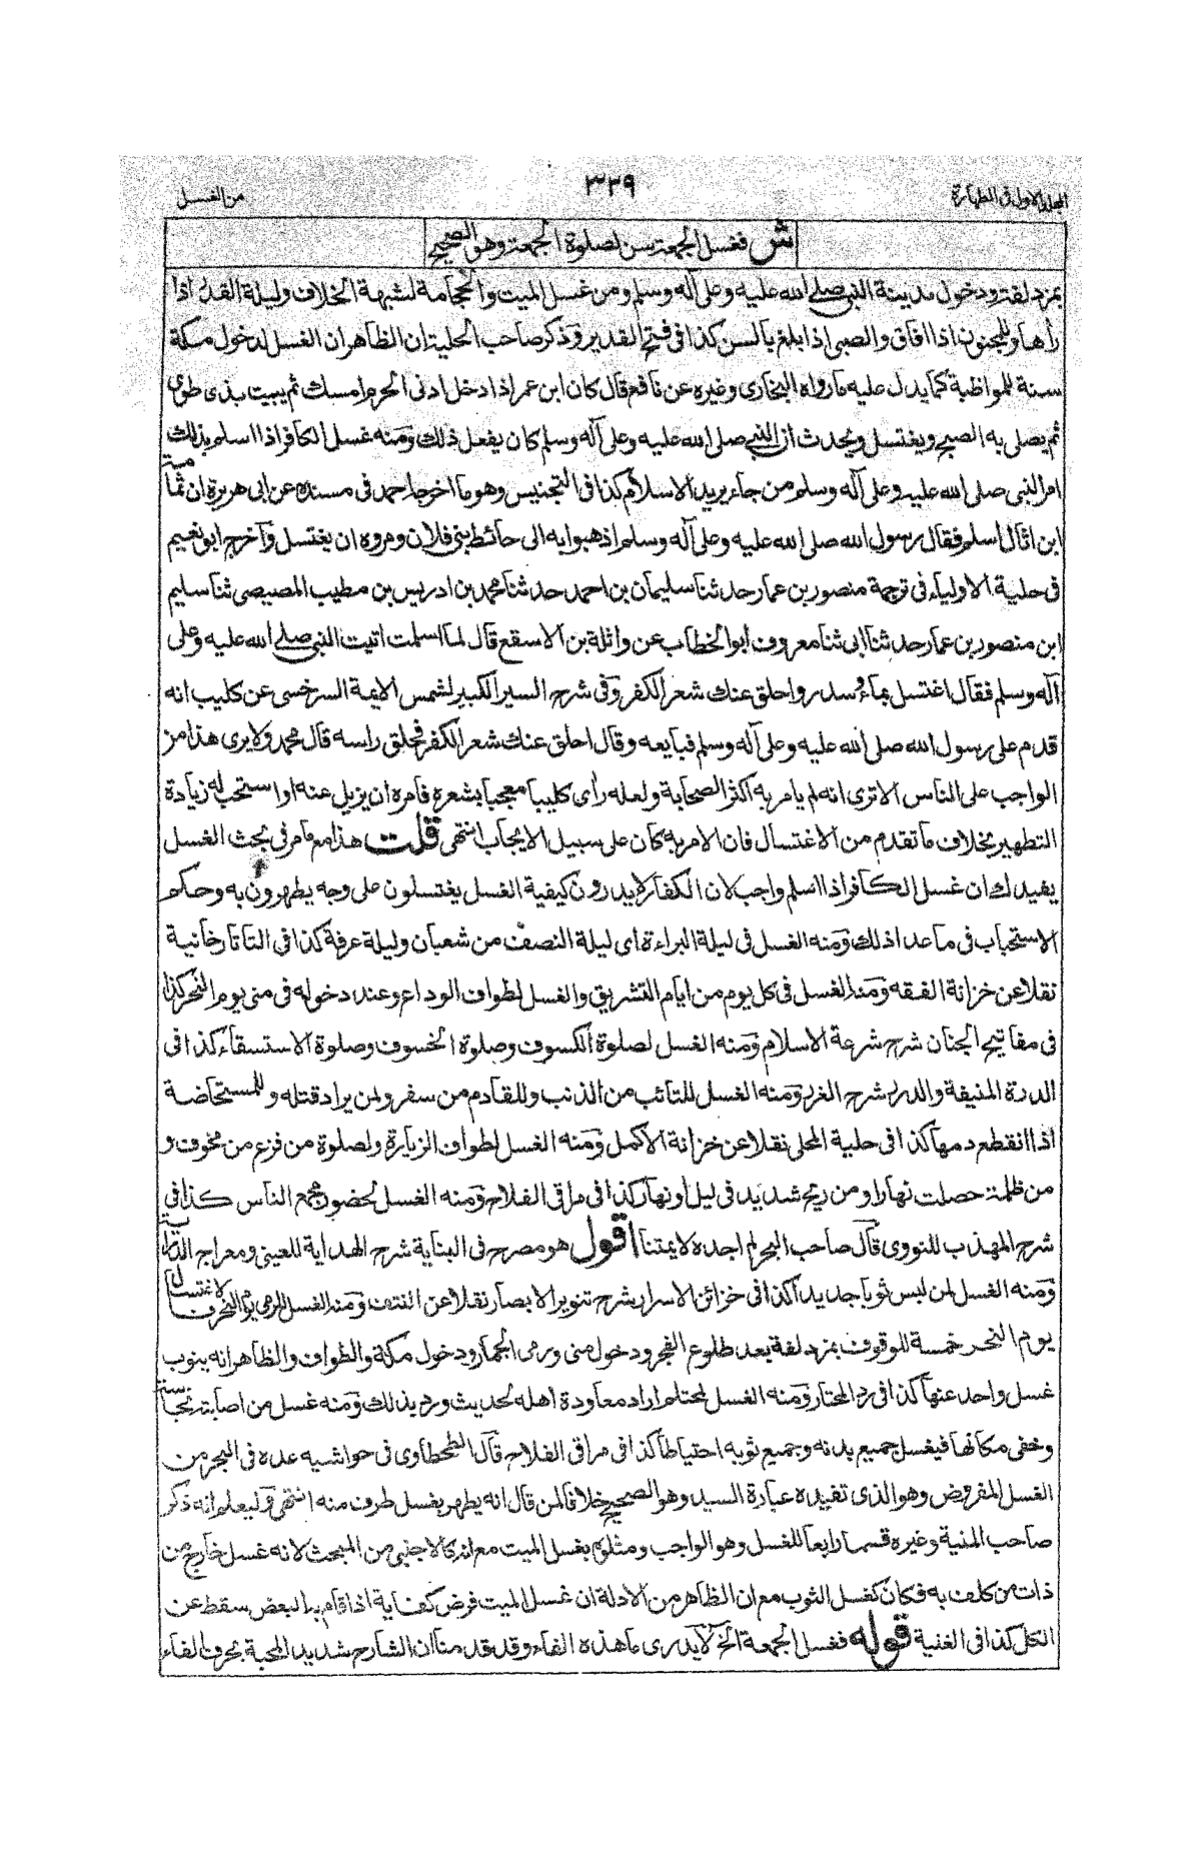 المجلد الاول فى الطهارة
٣٣٩
من الغسل
ش فغسل الجمعة سن لصلوة الجمعة وهو الصحيح
بمزدلفة ودخول مدينة النبى صلى الله عليه وعلى آله وسلم ومن غسل الميت والحجامة لشبهة الخلاف وليلة القدر اذا
رأها وللمجنون اذا افاق والصبى اذا بلغ بالسن كذا فى فتح القدير وذكر صاحب الحلية ان الظاهر ان الغسل لدخول مكة
سنة للمواظبة كما يدل عليه ما رواه البخارى وغيره عن نافع قال كان ابن عمر اذا دخل ادنى الحرم امسك ثم يبيت بذى طوى
ثم يصلى به الصبح ويغتسل ويحدث ان النبى صلى الله عليه وعلى آله وسلم كان يفعل ذلك ومنه غسل الكافر اذا اسلم بذلك
امر النبى صلى الله عليه وعلى آله وسلم من جاء يريد الاسلام كذا فى التجنيس وهو ما اخرجه احمد فى مسنده عن ابى هريرة ان ثمامة
ابن اثال اسلم فقال رسول الله صلى الله عليه وعلى آله وسلم اذهبوا به الى حائط بنى فلان ومروه ان يغتسل وآخرج ابو نعيم
فى حلية الاولياء فى ترجمة منصور بن عمار حدثنا سليمان بن احمد حدثنا محمد بن ادريس بن مطيب المصيصى ثنا سليم
ابن منصور بن عمار حدثنا ابى ثنا معروف ابو الخطاب عن واثلة بن الاسقع قال لما اسلمت اتيت النبى صلى الله عليه وعلى
آله وسلم فقال اغتسل بماء وسدر واحلق عنك شعر الكفر وفى شرح السير الكبير لشمس الايمة السرخسى عن كليب انه
قدم على رسول الله صلى الله عليه وعلى آله وسلم فبايعه وقال احلق عنك شعر الكفر فحلق راسه قال محمد ولا يرى هذا من
الواجب على الناس الا ترى انه لم يامر به اكثر الصحابة ولعله رأى كليبا معجبا بشعره فامره ان يزيل عنه او استحب له زيادة
التطهير بخلاف ما تقدم من الاغتسال فان الامر به كان على سبيل الايجاب انتهى قلت هذا مع ما مر فى بحث الغسل
يفيدك ان غسل الكافر اذا اسلم واجب لان الكفار لا يدرون كيفية الغسل يغتسلون على وجه يطهرون به وحكم
الاستحباب فى ما عدا ذلك ومنه الغسل فى ليلة البراءة اى ليلة النصف من شعبان وليلة عرفة كذا فى التاتارخانية
نقلا عن خزانة الفقه ومنه الغسل فى كل يوم من ايام التشريق والغسل لطواف الوداع وعند دخوله فى منى يوم النحر كذا
فى مفاتيح الجنان شرح شرعة الاسلام ومنه الغسل لصلوة الكسوف وصلوة الخسوف وصلوة الاستسقاء كذا فى
الدرة المنيفة والدرر شرح الغرر ومنه الغسل للتائب من الذنب وللقادم من سفر ولمن يراد قتله وللمستحاضة
اذا انقطع دمها كذا فى حلية المحلى نقلا عن خزانة الاكمل ومنه الغسل لطواف الزيارة ولصلوة من فزع من مخوف و
من ظلمة حصلت نهارا ومن ريح شديد فى ليل او نهار كذا فى مراقى الفلاح ومنه الغسل لحضور مجمع الناس كذا فى
شرح المهذب للنووى قال صاحب البحر لم اجده لايمتنا اقول هو مصرح فى البناية شرح الهداية للعينى ومعراج الدراية
ومنه الغسل لمن لبس ثوبا جديدا كذا فى خزائن الاسرار شرح تنوير الابصار نقلا عن النتف ومنه الغسل لرمى يوم النحر فالاغتسال
يوم النحر خمسة للوقوف بمزدلفة بعد طلوع الفجر ودخول منى ورمى الجمار ودخول مكة والطواف والظاهر انه ينوب
غسل واحد عنها كذا فى رد المحتار ومنه الغسل لمحتلم اراد معاودة اهله لحديث ورد بذلك ومنه غسل من اصابته نجاسة
وخفى مكانها فيغسل جميع بدنه وجميع ثوبه احتياطا كذا فى مراقى الفلاح قال الطحطاوى فى حواشيه عده فى البحر من
الغسل المفروض وهو الذى تفيده عبارة السيد وهو الصحيح خلافا لمن قال انه يطهر بغسل طرف منه انتهى وليعلم انه ذكر
صاحب المنية وغيره قسما رابعا للغسل وهو الواجب ومثلوه بغسل الميت مع انه كالاجنبى من المبحث لانه غسل خارج من
ذات من كلف به فكان كغسل الثوب مع ان الظاهر من الادلة ان غسل الميت فرض كفاية اذا قام به البعض سقط عن
الكل كذا فى الغنية قوله فغسل الجمعة الخ لا يدرى ما هذه الفاء وقد قدمنا ان الشارح شديد المحبة بحرف الفاء